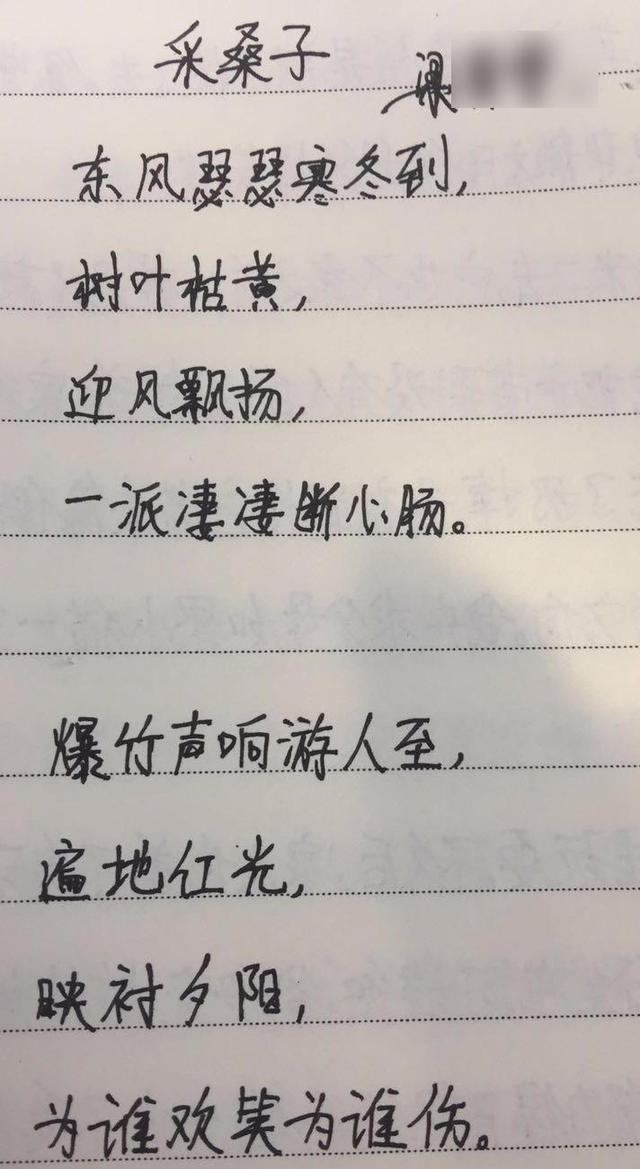 采桑子
梁
东风瑟瑟寒冬到,
树叶枯黄,
迎风飘扬,
一派凄凄断心肠。
爆竹声响游人至,
遍地红光,
映衬夕阳,
为谁欢笑为谁伤。